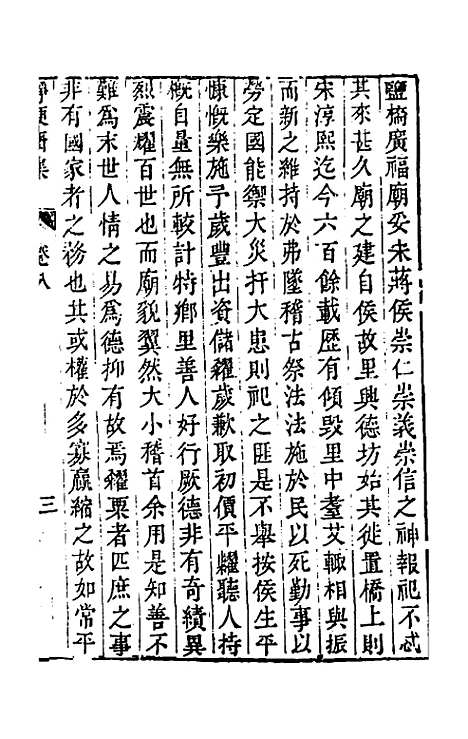 鹽橋廣福廟妥宋蔣侯崇仁崇義崇信之神報祀不忒
其來甚久廟之建自侯故里興德坊始其徙置橋上則
宋淳熙迄今六百餘載歷有傾毀里中耋艾輒相與振
而新之維持於弗墜稽古祭法法施於民以死勤事以
勞定國能禦大災扞大患則祀之匪是不舉按侯生平
慷慨樂施予歲豐出資儲糴歲歉取初價平糶聽人持
概自量無所較計特鄉里善人好行厥德非有奇績異
烈震耀百世也而廟貌翼然大小稽首余用是知善不
難為末世人情之易為德抑有故焉糴粟者匹庶之事
非有國家者之務也其或權於多寡贏縮之故如常平
卷八
三